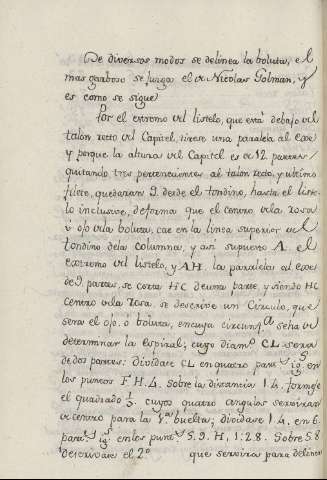 De diversos modos se delinea la boluta, el
mas garboso se jusga el de Nicolas Golman, y
es como se sigue
Por el extremo del listelo, que está debajo del
talon recto del Capitel, tirese una paralela al exe
y porque la altura del Capitel es de 12. partes,
quitando tres pertenecientes al talon recto, y ultimo
filete, quedaran 9. desde el tondino, hasta el liste-
lo inclusive, de forma que el centro de la rosa
ú ojo de la boluta, cae en la linea superior del
tondino de la columna, y asi supuesto A. el
extremo del listelo, y AH. la paralela al exe
de 9 partes, se corta HC de una parte, y siendo HC
centro de la rosa, se describe un Circulo, que
sera el ojo. ó boluta, en cuya circunfª se ha de
determinar la espiral; cuyo diamº CL sera
de dos partes: dividase CL en quatro partˢ
los puntos F H. 4. Sobre la distancia 1 4. formese
el quadrado cuyos quatro angulos serviran
de centro para la 1ª buelta; dividase 1. 4. en 6.
partˢ en los puntˢ 5. 9. H, 1 2. 8. Sobre 5 8
describase el 2º que servira para delinear